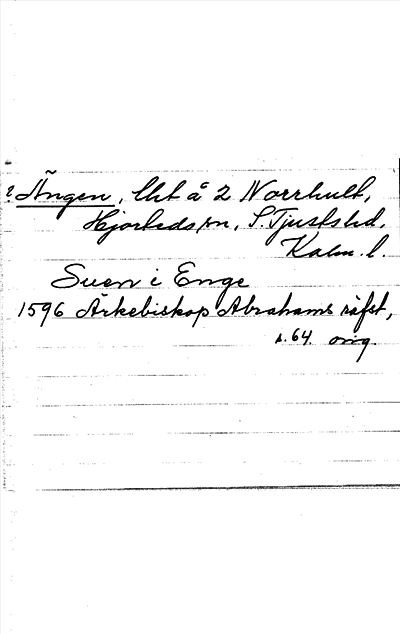 ? Ängen, lht å 2 Norrhult,
Hjorteds sn, S. Tjusts hd,
Kalm. l.
Sven i Enge
1596 Ärkebiskop Abrahams räfst,
s. 64. orig.